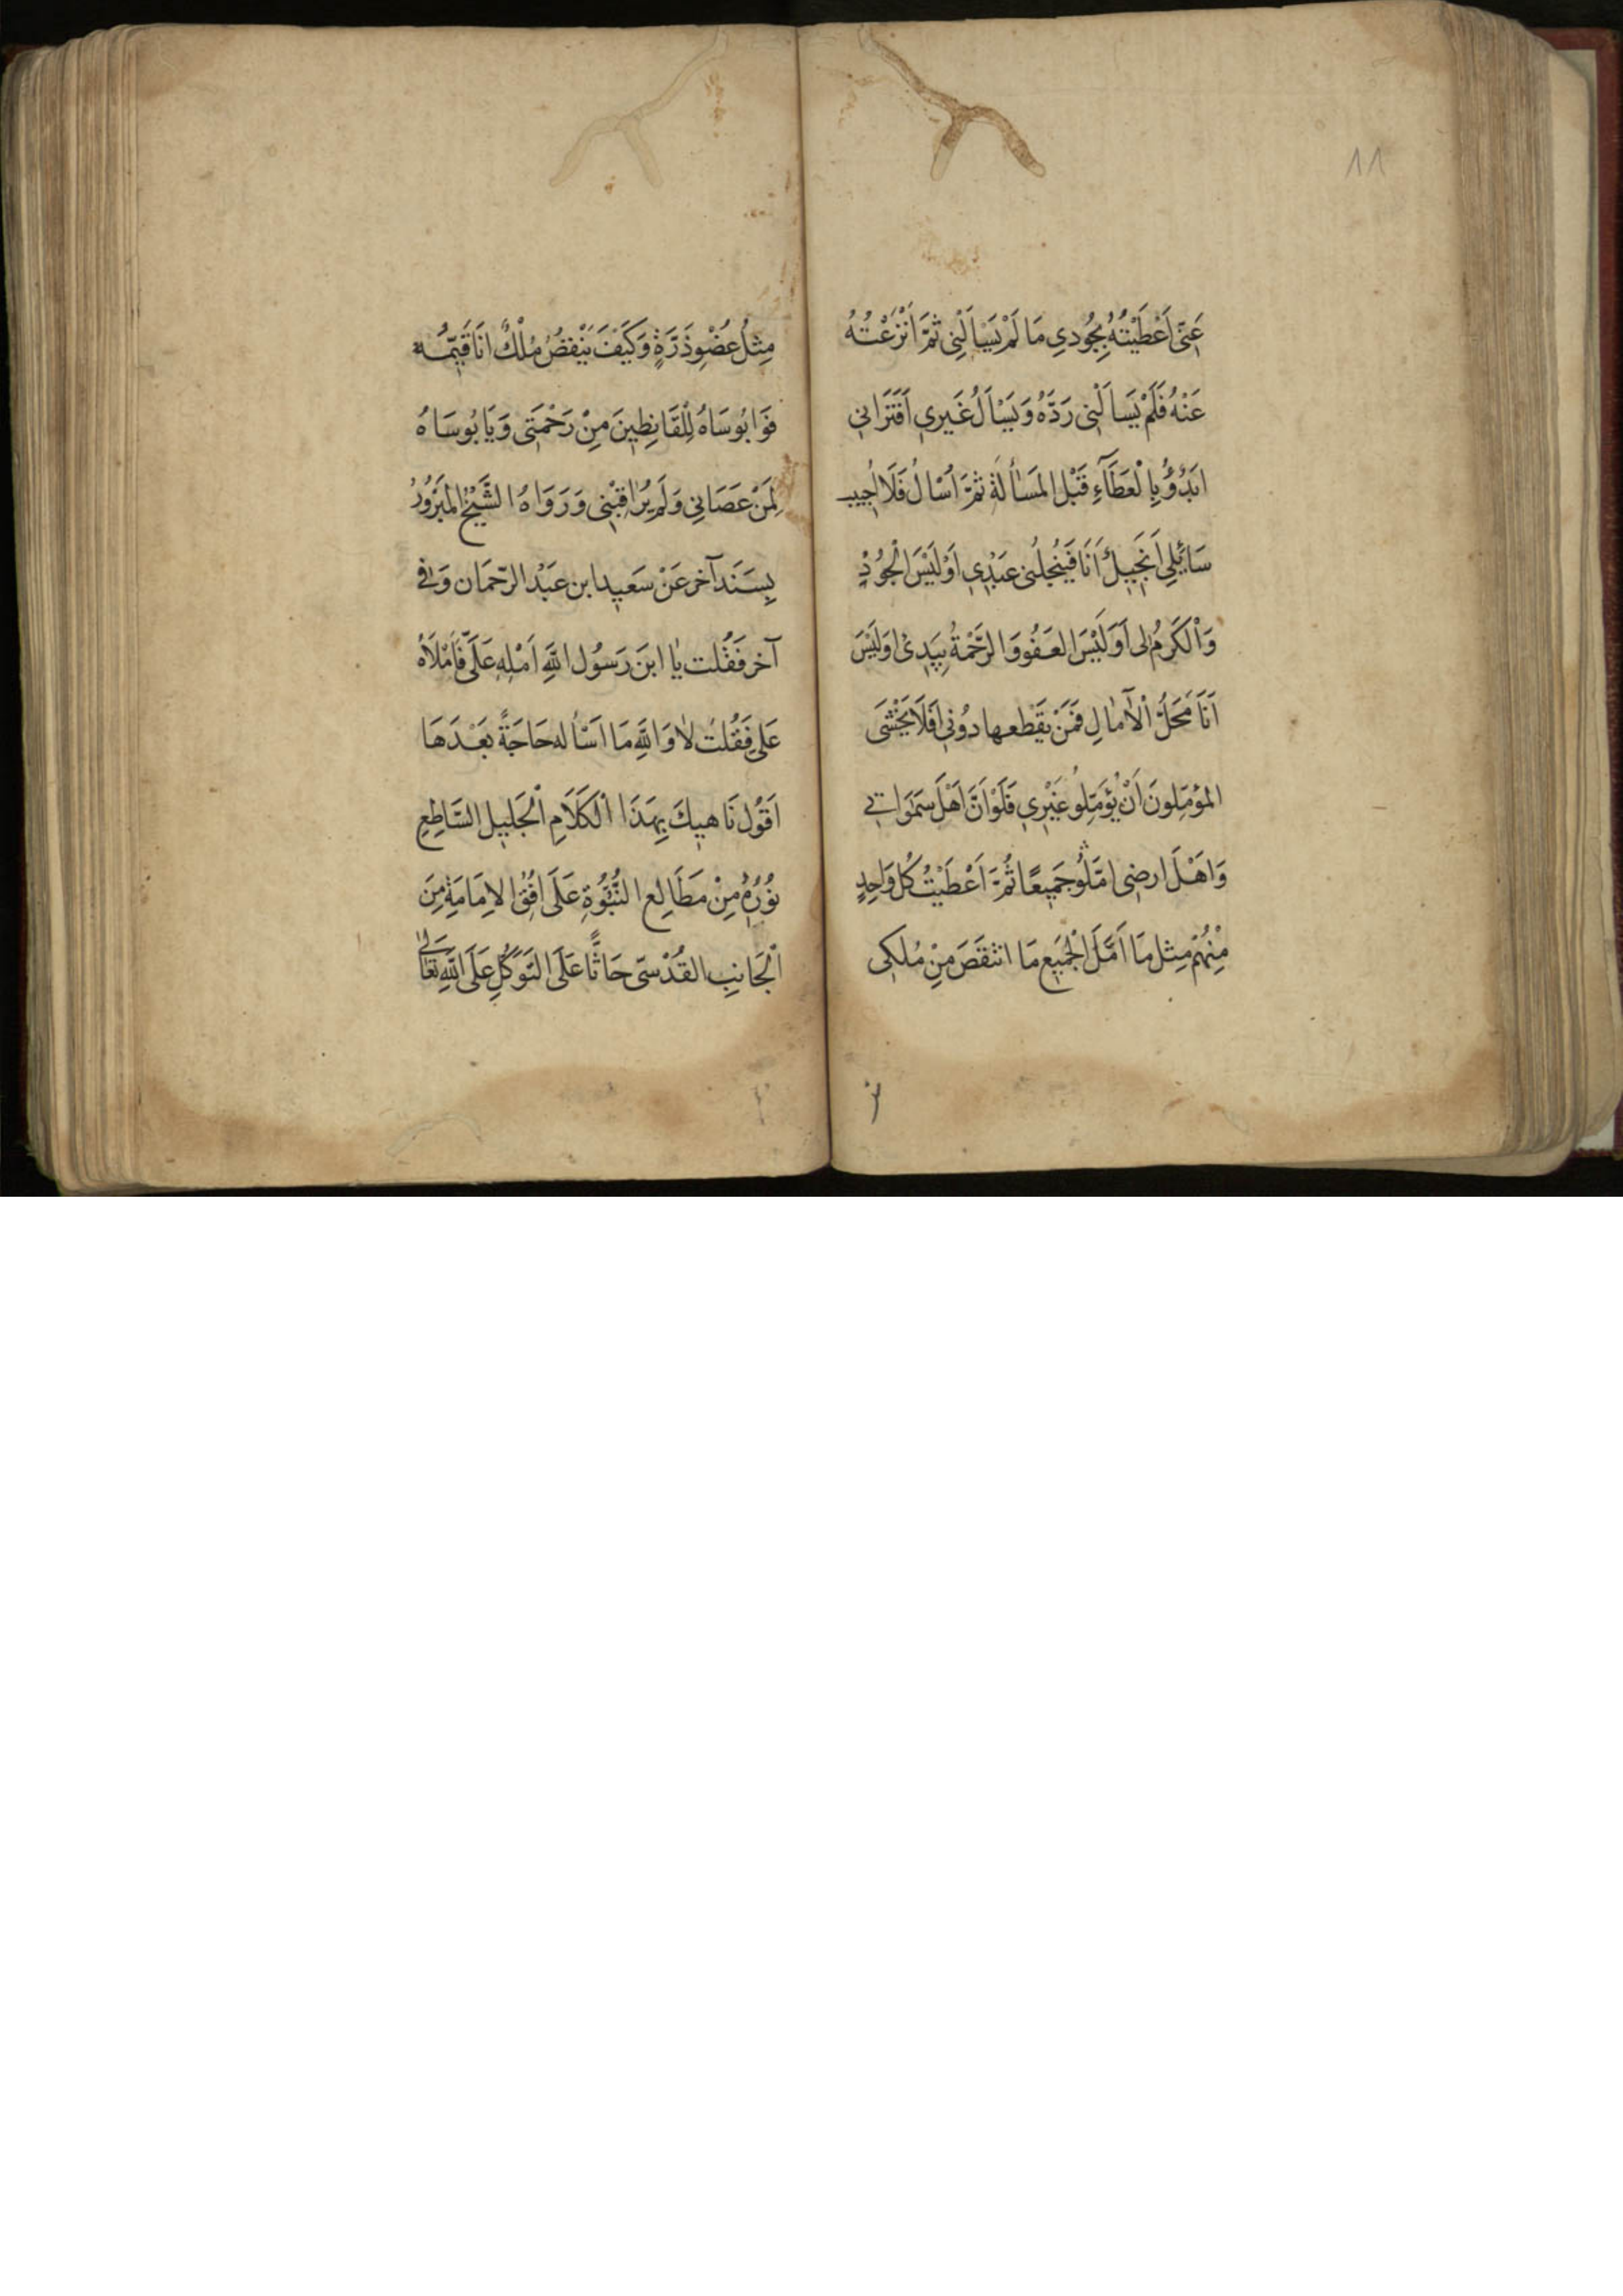 ١١
عَنّى اَعْطَيْتُهُ بِجُودي مَا لَمْ يَسْاَلْنِى ثُمَّ اَنْزَعْتُهُ
عَنْهُ فَلَمْ يَسالْنِى رَدَّهُ وَيَسْاَلُ غَيرِي اَفَتَرَانِى
ابَدْؤُ بِالْعَطَآءِ قَبْل المَسْاَلَةِ ثُمَّ اُسْالُ فَلَا اُجِيب
سَائِلِى اَبَخِيلٌ اَنَا فَيَبْخِلُنى عَبْدِي اَوْلَيْسَ الْجُوْدُ
وَالْكَرَمُ لى اَوَلَيْسَ العَفُو وَالرَّحْمَةُ بِيَدِىْ اوَلَيْسَ
اَنَا مَحَلُّ الْآمٰالِ فَمَنْ يَقْطعها دُونى اَفَلَا يَخْشَى
المؤمّلِونَ اَنْ يُؤمَّلِو غَيْرِي فَلَوْ اَنَّ اَهْلَ سَمٰوَاتِي
وَاَهْلَ ارضِى امَّلُو جَمِيعًا ثُمَّ اَعْطَيْتُ كُل وَاحِدٍ
مِنْهُمْ مِثل مَا اَمَّلَ الْجَمِيع مَا انتَقَصَ مِنْ مُلكِى
مِثْلُ عُضْوِ ذَرَّةٍ وَكَيْفَ يَنْقصُ مُلْكٌ انَا قَيِّمُه
فَوَا بُوسَاهُ لِلْقَانِطِينَ مِنْ رَحْمَتِى وَيَا بُوسَاهُ
لِمَنْ عَصَانِى وَلَم يُرَاقِبْنِى وَرَوَاهُ الشَّيْخُ المَبْرُورُ
بِسَنَد آخر عَنْ سَعيِد ابن عَبْد الرّحمَان وَفى
آخر فَقُلت يٰا ابنَ رَسُول اللَّهِ اَمْلِهِ عَلَىَّ فَاَمْلَاهُ
عَلى فَقُلتُ لٰا وَاللَّهِ مَا اَسْاله حَاجَةً بَعْدَهَا
اَقُول نَاهيِكَ بِهَذَا الْكَلَامِ الْجَلِيلِ السَّاطِعِ
نُورُهُ مِنْ مَطَالِع النُّبُوَّةِ عَلَى افُقُ الامَامَةِ مِنَ
الْجَانِبِ القُدْسىّ حَاثًّا عَلَى التَوَكُّلِ عَلَى اللَّهِ تَعَالٰى